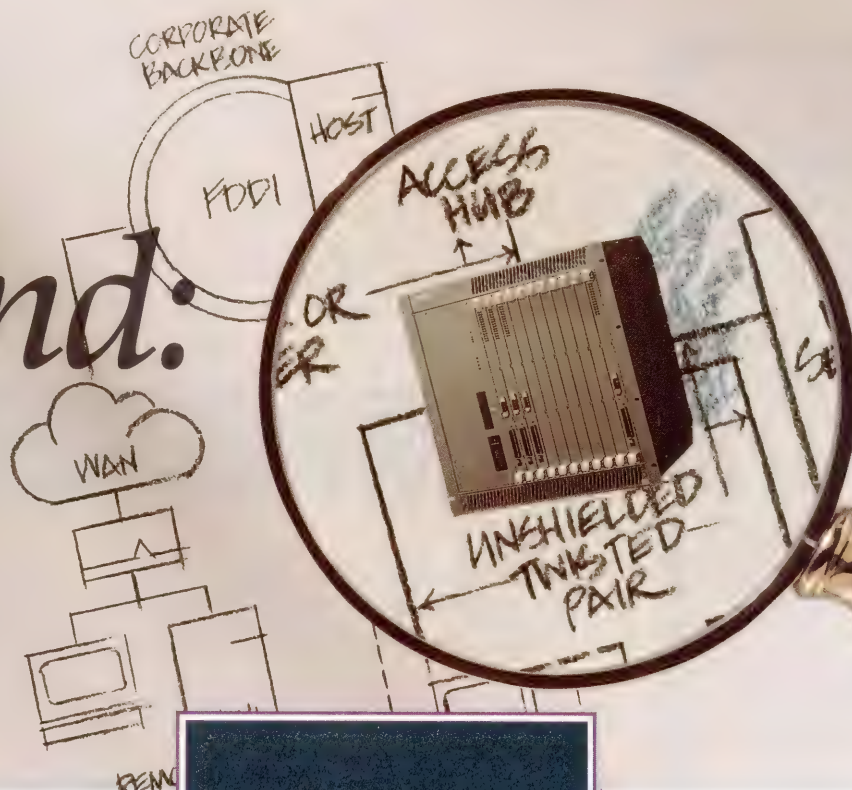 CORPORATE
BACKBONE
HOST
FDDI
ACCESS
HUB
OR
nd:
WAN
UNSHIELDED
TWISTED
PAIR